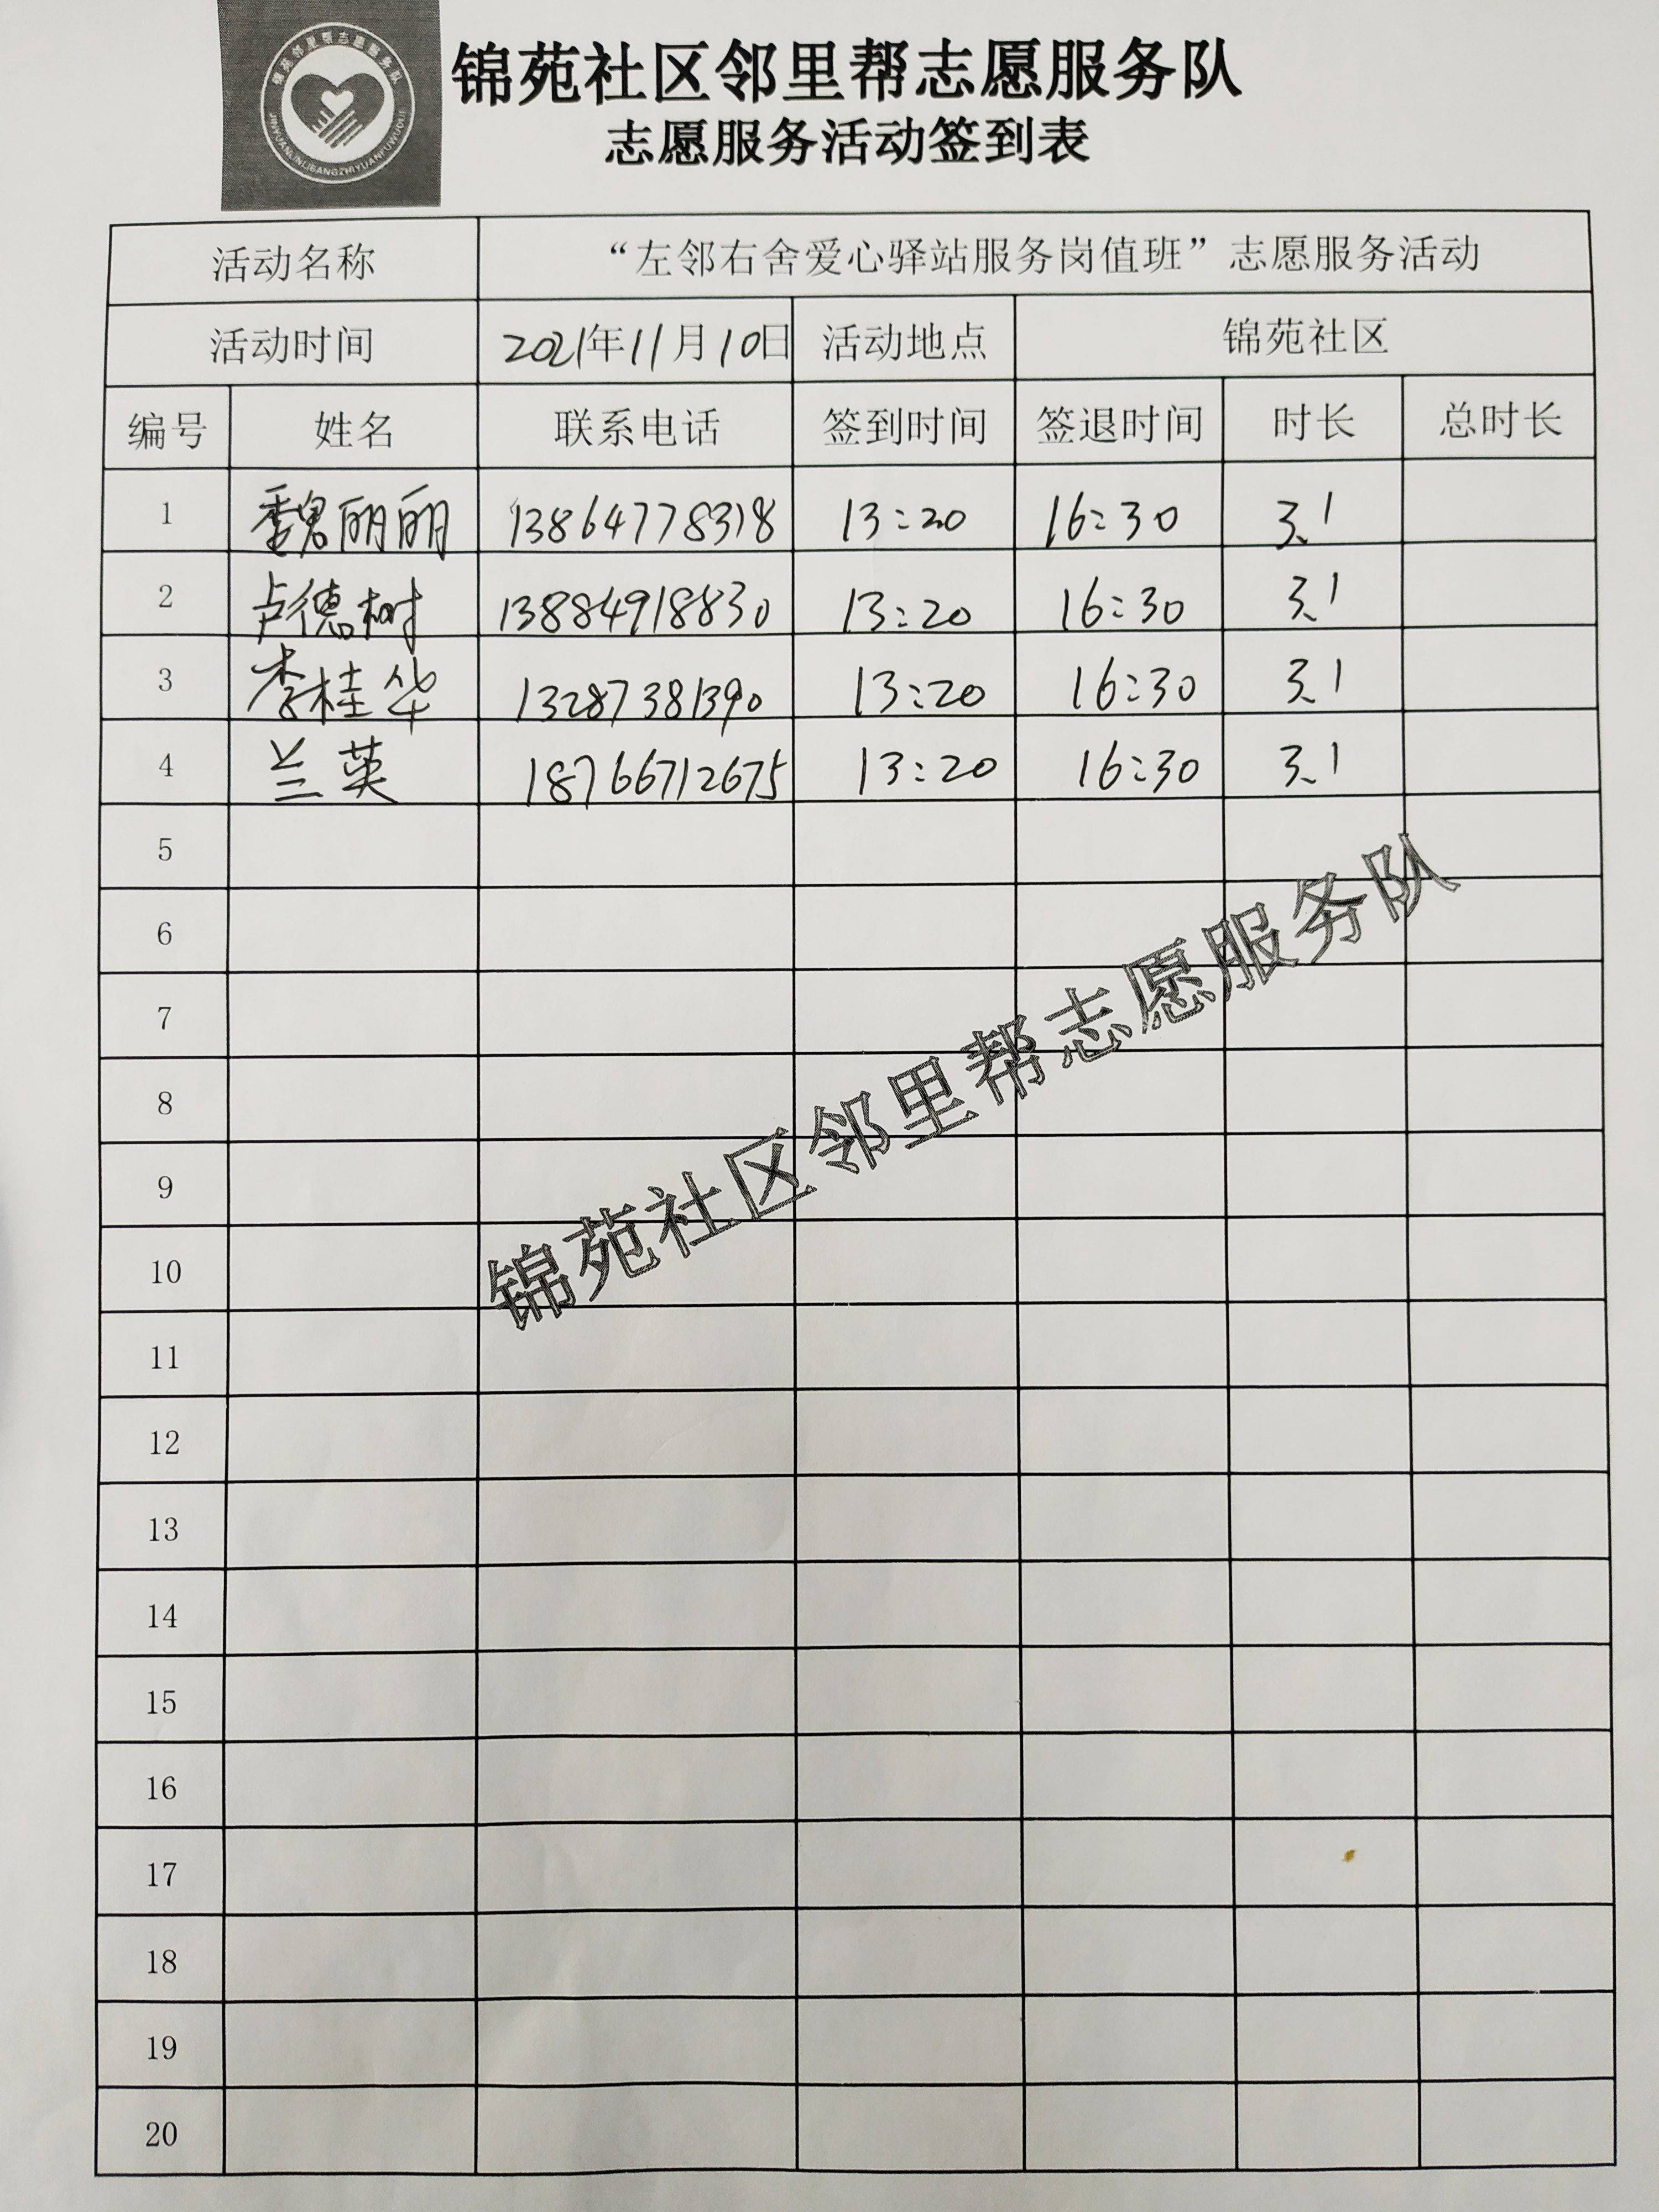 锦苑邻里帮志愿服务队
JINYUANLINLIBANGZHIYUANFUWUDUI
锦苑社区邻里帮志愿服务队
志愿服务活动签到表
活动名称 “左邻右舍爱心驿站服务岗值班”志愿服务活动
活动时间 2021年11月10日 活动地点 锦苑社区
编号 姓名 联系电话 签到时间 签退时间 时长 总时长
1 魏丽丽 13864778318 13:20 16:30 3.1
2 卢德树 13884918830 13:20 16:30 3.1
3 李桂华 13287381390 13:20 16:30 3.1
4 兰英 18766712675 13:20 16:30 3.1
5
6
7
8
9
10
11
12
13
14
15
16
17
18
19
20
锦苑社区邻里帮志愿服务队